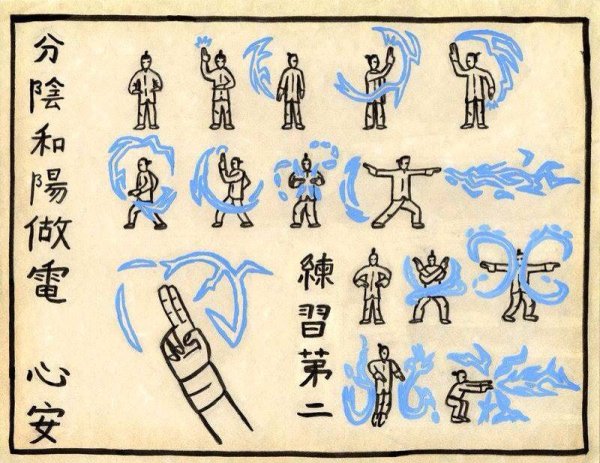 分陰和陽做電 心安
練習第二